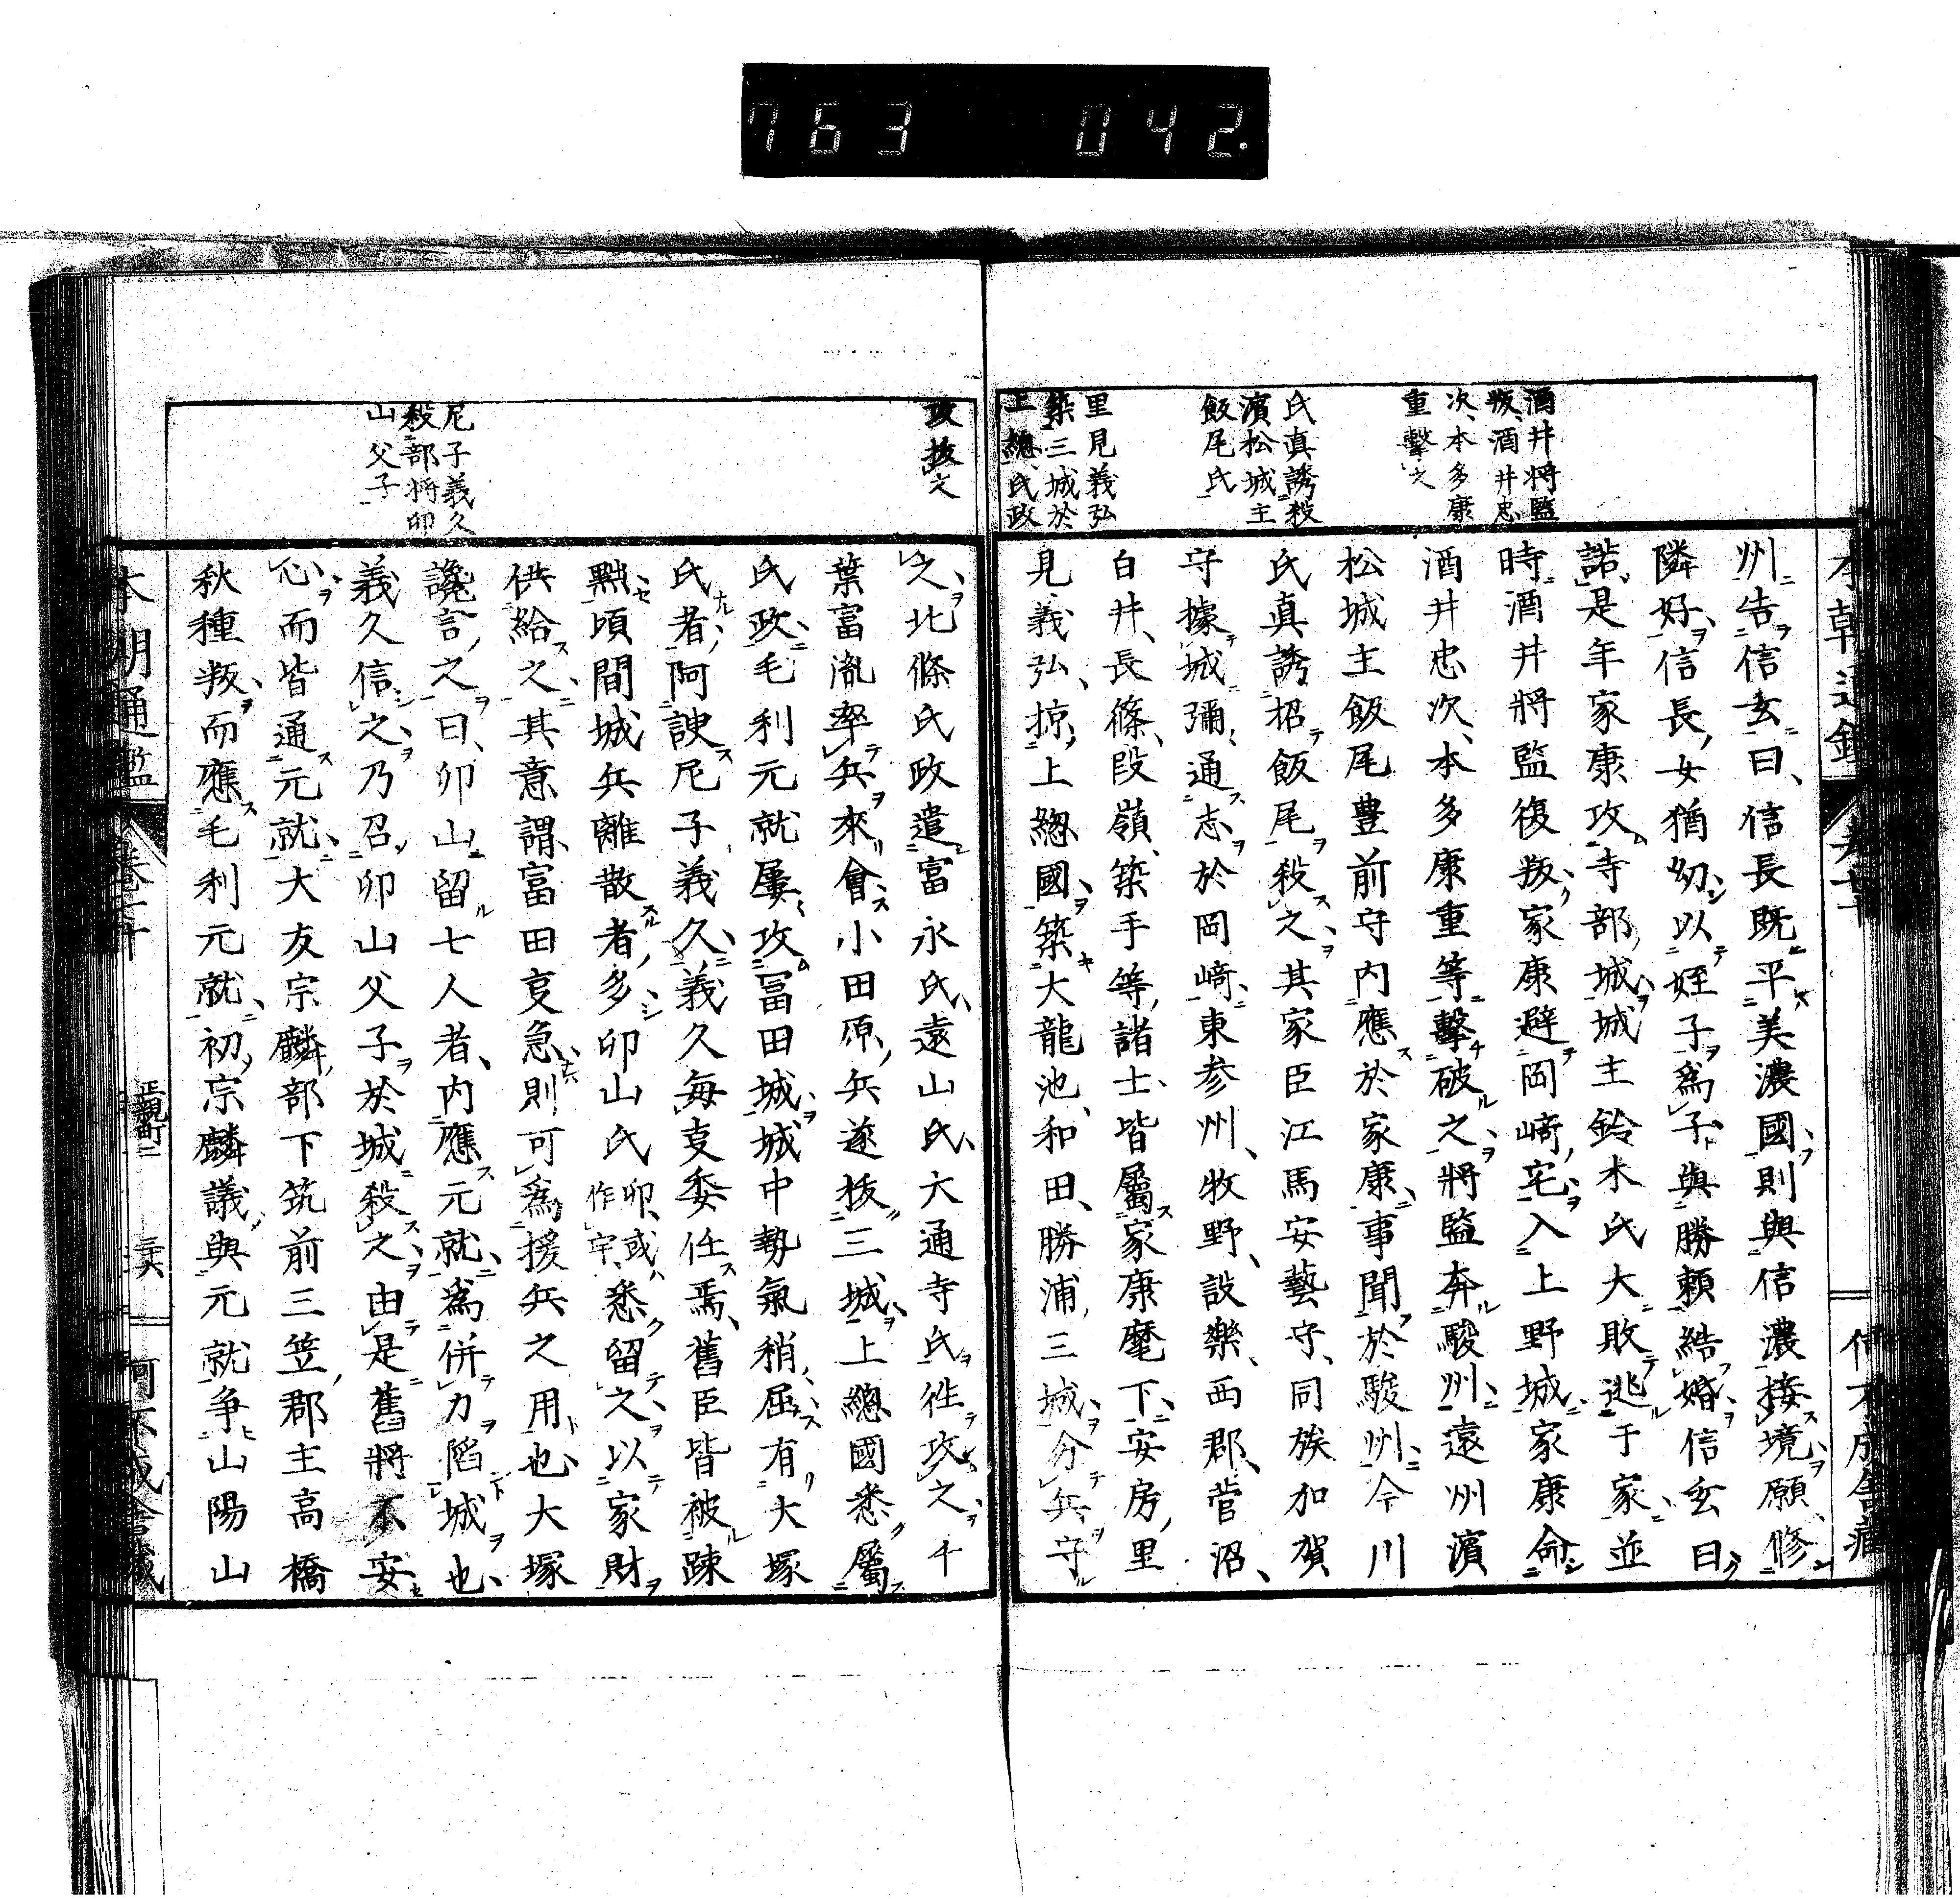 763 042.
酒井將監
叛、酒井忠
次、本多康
重擊之
氏真誘殺
濱松城主
飯尾氏
里見義弘
築三城於
上總、氏政
州告信玄曰、信長既平美濃國、則與信濃接境、願修
隣好、信長女猶幼、以姪子爲子、與勝頼結婚、信玄曰
諾、是年家康攻寺部城、城主鈴木氏大敗逃于家、並
時酒井將監復叛、家康避岡﨑宅、入上野城、家康命
酒井忠次、本多康重等擊破之、將監奔駿州、遠州濱
松城主飯尾豊前守内應於家康、事聞於駿州、今川
氏真誘招飯尾殺之、其家臣江馬安藝守、同族加賀
守據城彌通志於岡﨑、東参州、牧野、設樂、西郡、菅沼、
白井、長篠、段嶺、築手等諸士、皆屬家康麾下、安房里
見義弘、掠上總國、築大龍池、和田、勝浦三城、分兵守
攻拔之
尼子義久
殺部將卯
山父子
之、北條氏政遣富永氏、遠山氏、大通寺氏徃攻之、千
葉冨胤率兵來會、小田原兵遂拔三城、上總國悉屬
氏政、毛利元就屡攻冨田城、城中勢氣稍屈、有大塚
氏者、阿諛尼子義久、義久毎㕝委任焉、舊臣皆被踈
點、頃間城兵離散者多、卯山氏卯、或作宇、悉留之、以家財
供給之、其意謂冨田㕝急、則可爲援兵之用也、大塚
讒言之曰、卯山留七人者、内應元就、爲併力陷城也、
義久信之、乃召卯山父子於城殺之、由是舊將不安
心、而皆通元就、大友宗麟部下筑前三笠郡主高橋
秋種叛而應毛利元就、初宗麟議與元就争山陽山
本朝通鑑
正親町二
三六